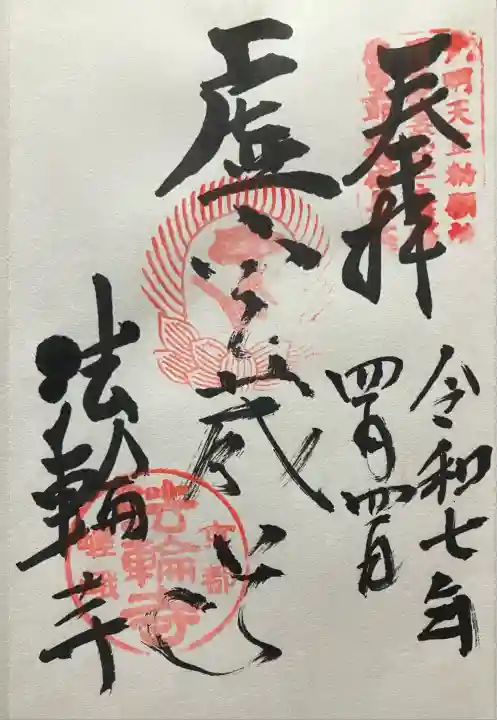 奉拝
令和七年
四月四日
虚空蔵
法輪寺
京都
嵯峨
法輪寺